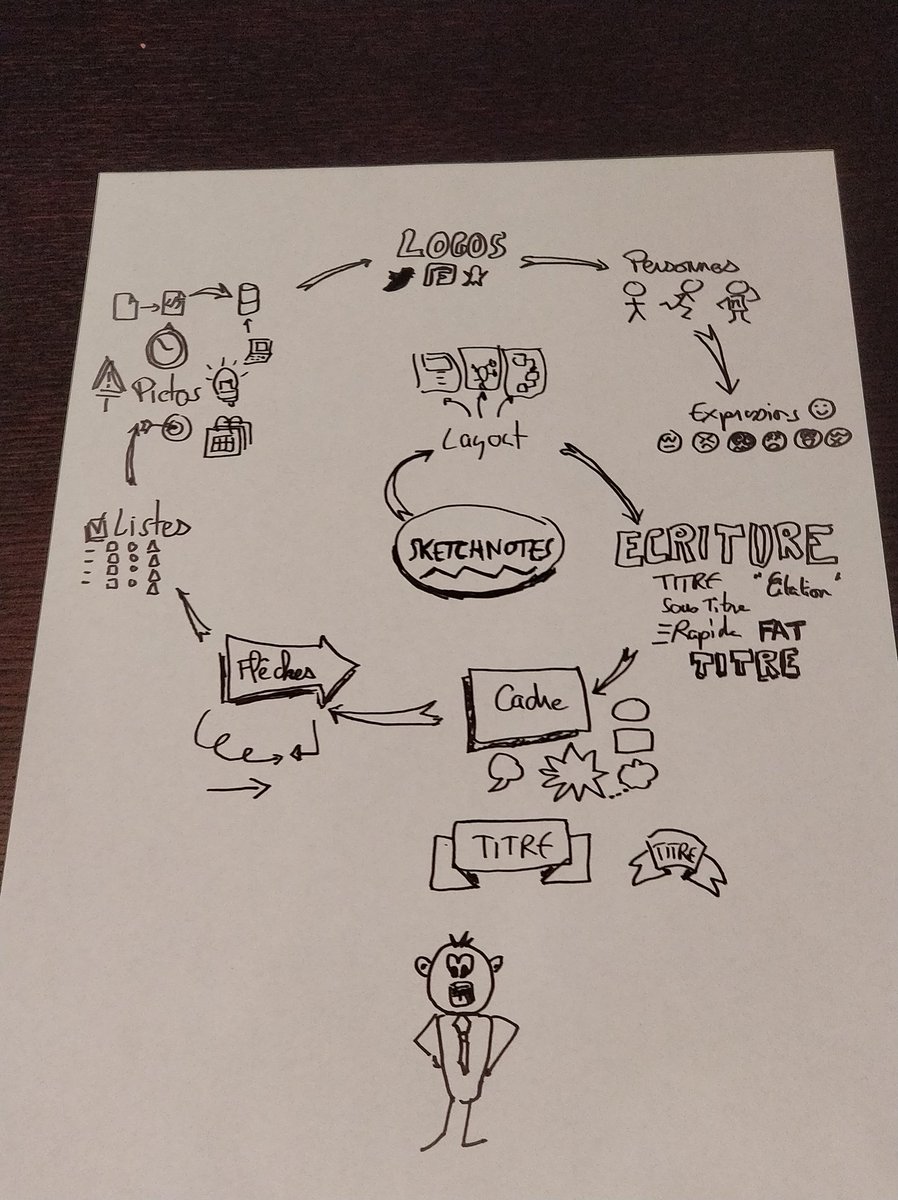 LOGOS
Personnes
Pictos
Expressions
Layout
Listes
SKETCHNOTES
ECRITURE
TITRE "Citation"
Sous Titre
Rapide FAT
TITRE
Flèches
Cadre
TITRE
TITRE